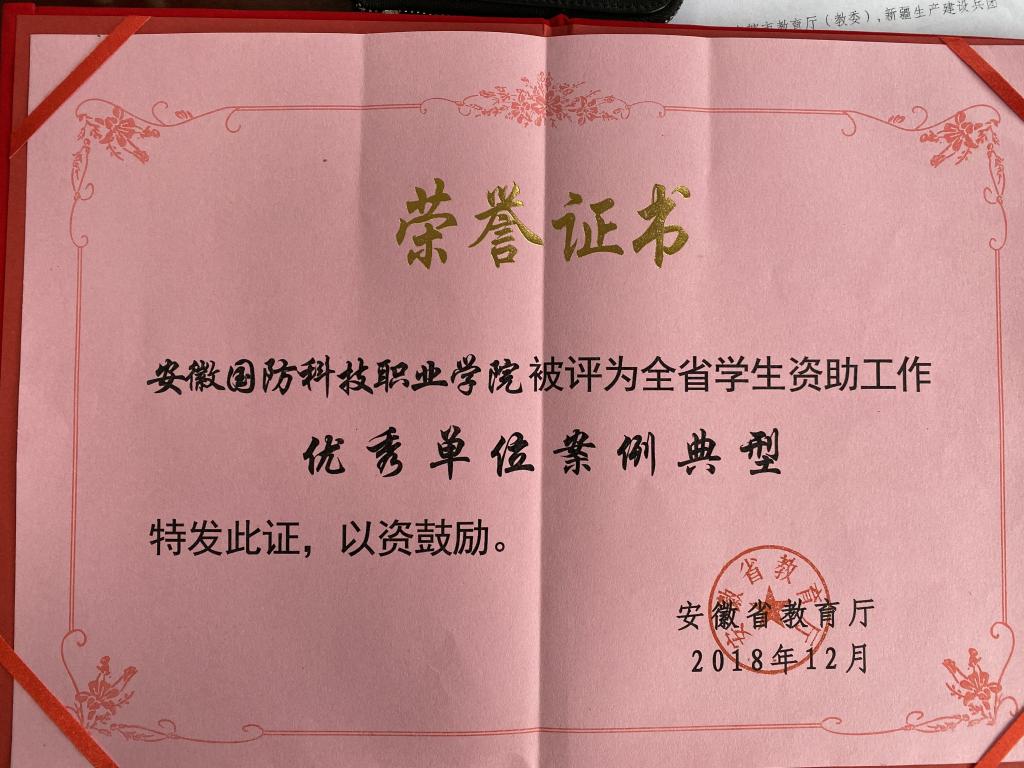 市教育厅（教委），新疆生产建设兵团
荣誉证书
安徽国防科技职业学院被评为全省学生资助工作
优秀单位案例典型
特发此证，以资鼓励。
安徽省教育厅
安徽省教育厅
2018年12月